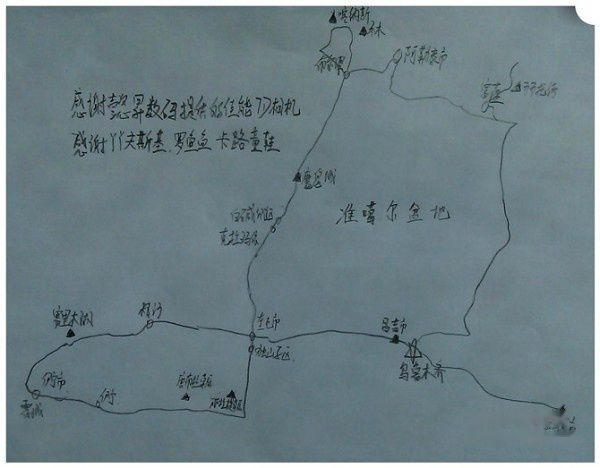 喀纳斯
禾木
布尔津
阿勒泰市
富蕴
可可托海
感谢懿昇数码提供的佳能7D相机
感谢丫丫夫斯基、罗鱼鱼 卡路童鞋
魔鬼城
准噶尔盆地
白碱滩区
克拉玛依
赛里木湖
精河
奎屯市
昌吉市
独山子区
乌鲁木齐
伊宁市
霍城